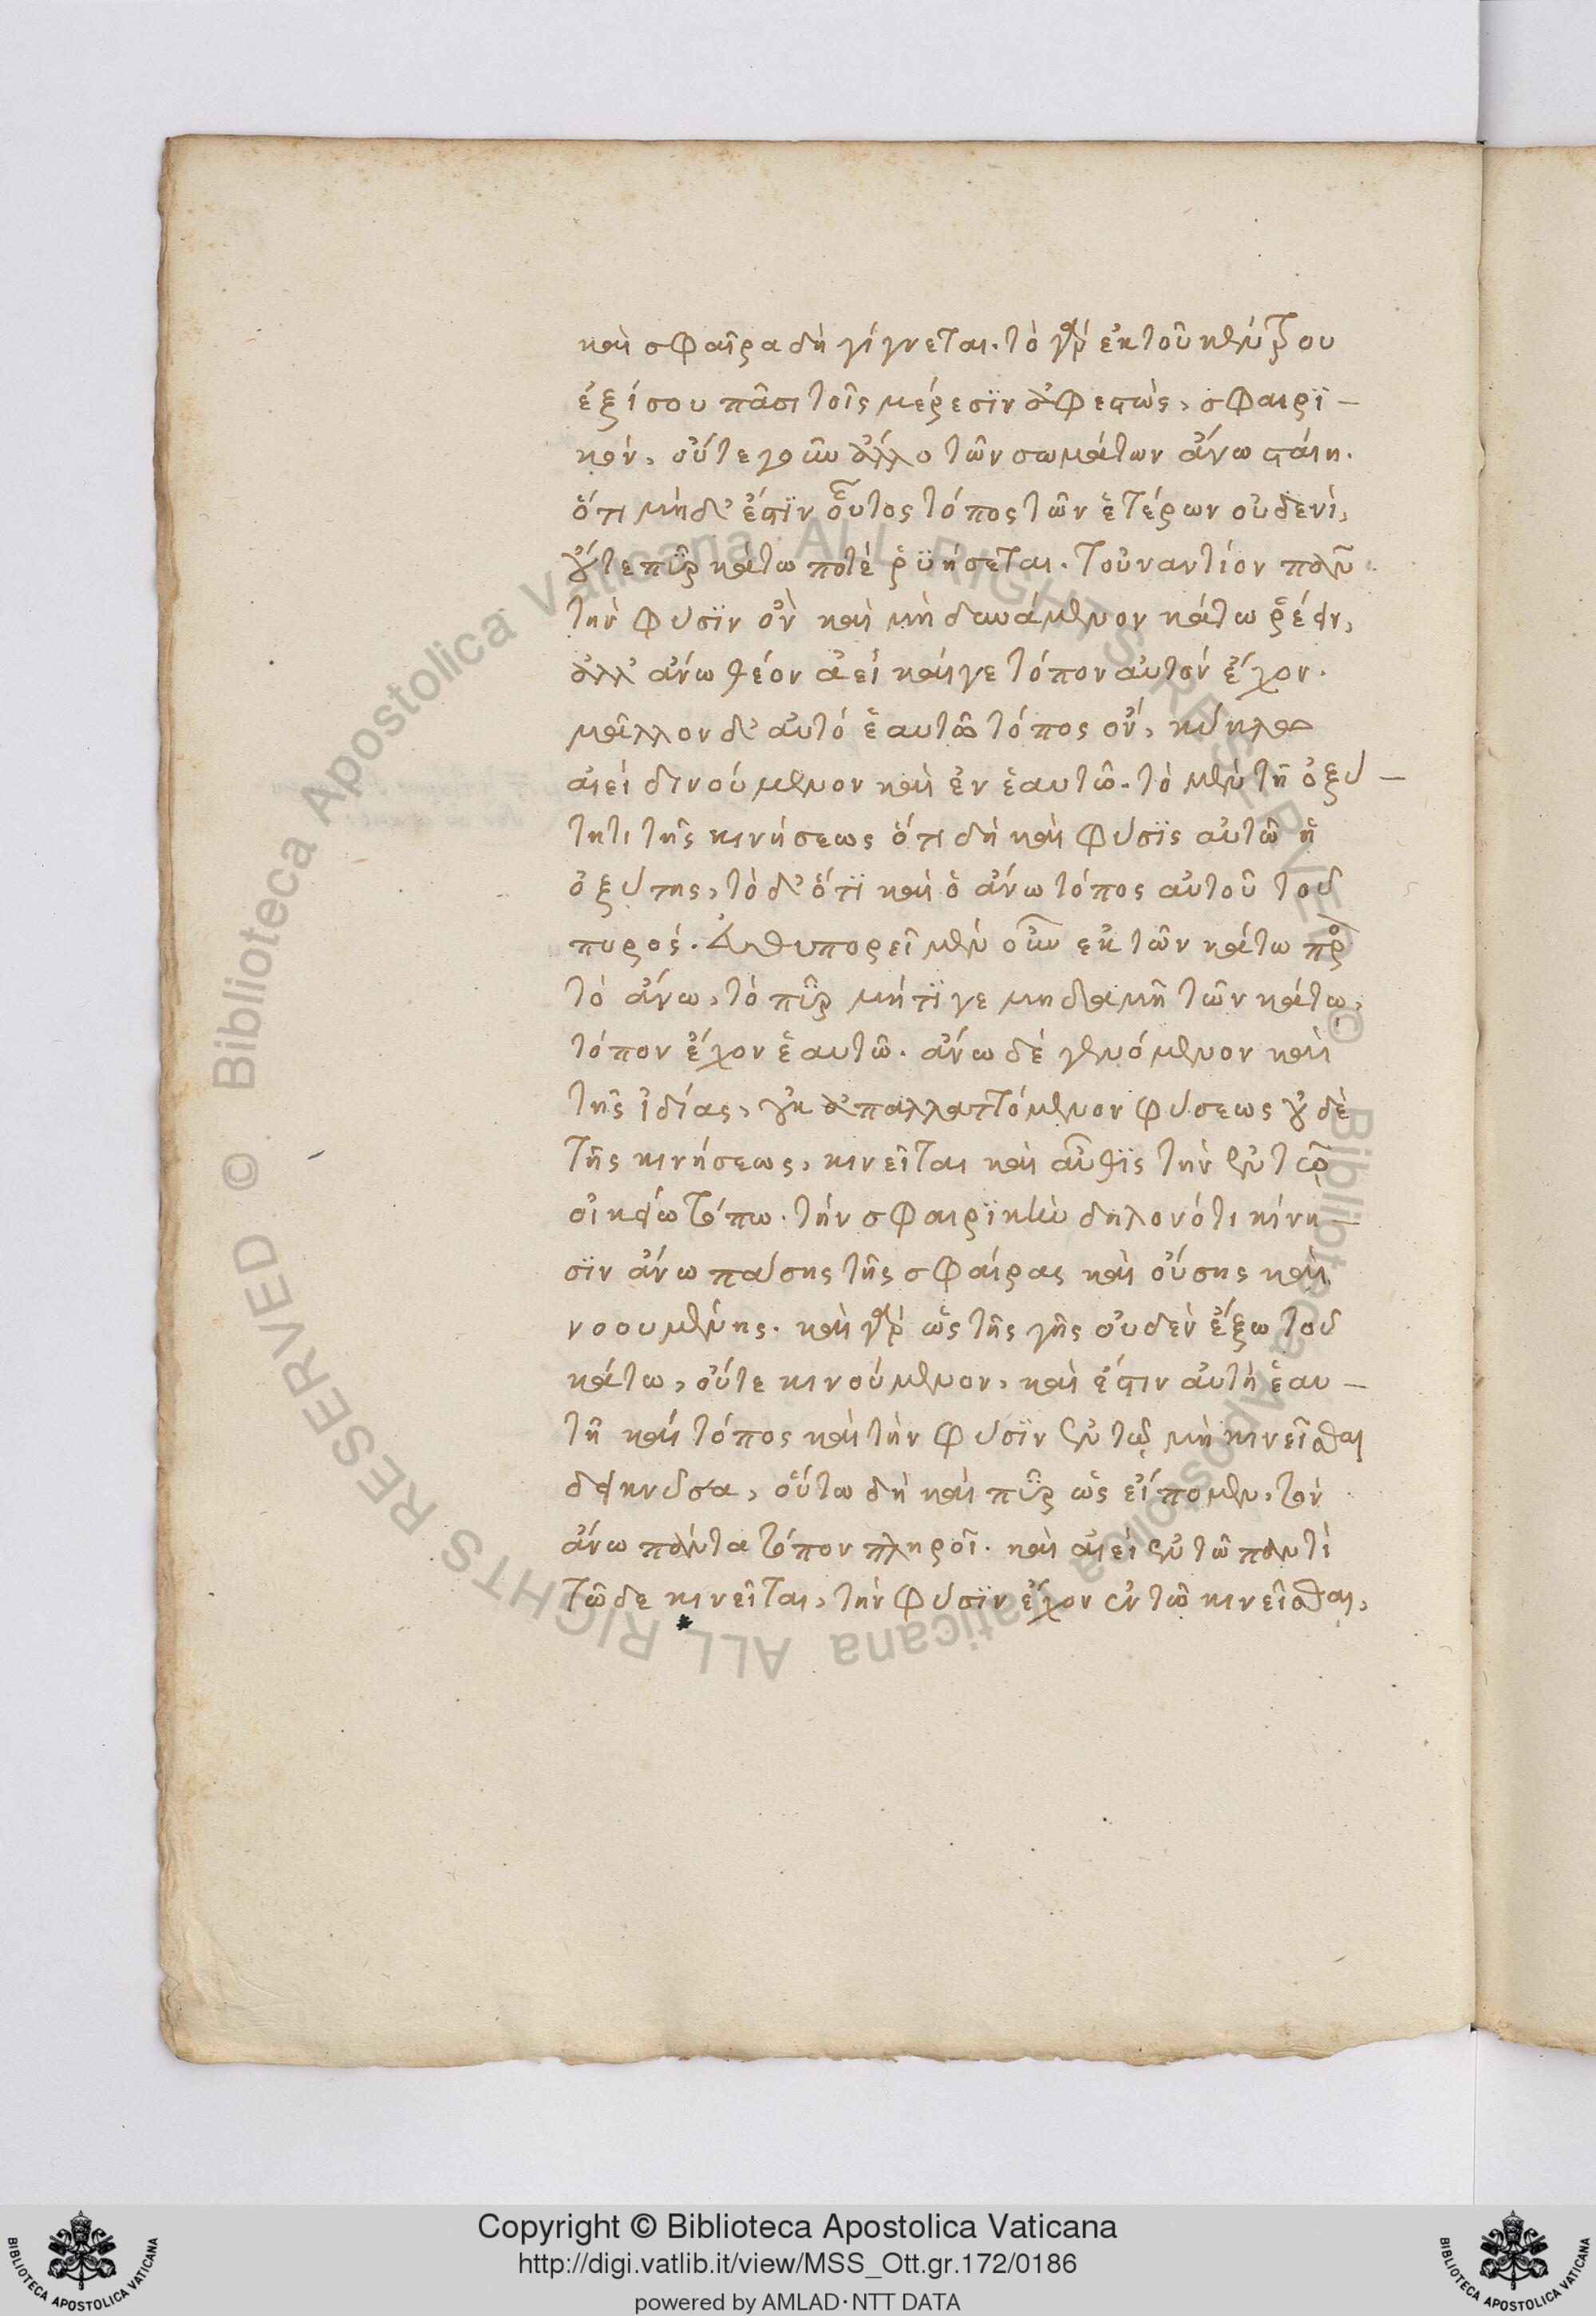 καὶ σφαῖρα δὴ γίγνεται. τὸ γὰρ ἐκ τοῦ κέντρου
ἐξίσου πᾶσι τοῖς μέρεσϊν ἀφεστὼς, σφαιρϊ-
κόν. οὔτε γοῦν ἄλλο τῶν σωμάτων ἄνω σταίη.
ὅτι μὴδ' ἔστϊν οὗτος τόπος τῶν ἑτέρων οὐδενὶ,
οὔτε πῦρ κάτω ποτὲ ῥϋήσεται. τοὐναντίον πᾶν
τὴν φύσϊν ὂν καὶ μὴ δυνάμενον κάτω ῥέειν,
ἀλλ' ἄνω θέον ἀεὶ καίγε τόπον αὐτὸν ἔχον.
μᾶλλον δ' αὐτὸ ἑαυτῶ τόπος ὂν, κύκλω
αἰεὶ δινούμενον καὶ ἐν ἑαυτῶ. τὸ μὲν τῆ ὀξύ-
τητι τῆς κινήσεως ὅτι δὴ καὶ φύσϊς αὐτῶ ἡ
ὀξύτης, τὸ δ' ὅτϊ καὶ ὁ ἄνω τόπος αὐτοῦ τοῦ
πυρός. Ἀνθυπορεῖ μὲν οὖν ἐκ τῶν κάτω πρὸς
τὸ ἄνω, τὸ πῦρ μήτϊ γε μηδαμῆ τῶν κάτω,
τόπον ἔχον ἑαυτῶ. ἄνω δὲ γενόμενον καὶ
τῆς ἰδίας, οὐκ ἀπαλλαττόμενον φύσεως οὐδὲ
τῆς κινήσεως, κινεῖται καὶ αὖθϊς τὴν ἐν τῷ
οἰκείω τόπω. τὴν σφαιρϊκὴν δηλονότι κίνη-
σϊν ἄνω πάσης τῆς σφαίρας καὶ οὔσης καὶ
νοουμένης. καὶ γὰρ ὡς τῆς γῆς οὐδὲν ἔξω τοῦ
κάτω, οὔτε κινούμενον, καὶ ἔστιν αὐτὴ ἑαυ-
τῆ καὶ τόπος καὶ τὴν φύσϊν ἐν τῷ μὴ κινεῖσθαι
δεικνῦσα, οὕτω δὴ καὶ πῦρ ὡς εἴπομεν, τὸν
ἄνω πάντα τόπον πληροῖ. καὶ αἰεὶ ἐν τῶ παντὶ
τῶδε κινεῖται, τὴν φύσϊν ἔχον ἐν τῶ κινεῖσθαι,
Copyright © Biblioteca Apostolica Vaticana
http://digi.vatlib.it/view/MSS_Ott.gr.172/0186
powered by AMLAD·NTT DATA
BIBLIOTECA APOSTOLICA VATICANA
BIBLIOTECA APOSTOLICA VATICANA
© Biblioteca Apostolica Vaticana ALL RIGHTS RESERVED
© Biblioteca Apostolica Vaticana ALL RIGHTS RESERVED